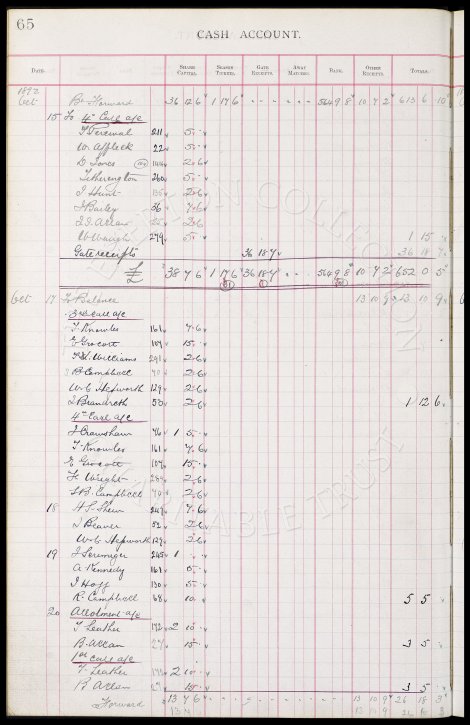 65
CASH ACCOUNT.
DATE. SHARE CAPITAL. SEASON TICKETS. GATE RECEIPTS. AWAY MATCHES. BANK. OTHER RECEIPTS. TOTALS.
1892
Oct Bt Forward 36 12 6 1 17 6 564 9 8 10 7 2 613 6 10
15 To 4th Call a/c
T Percival 211 5
W. Affleck 22 5
D Jones 2 6
Tetherington 260 5
J Hunt 2 6
J Bailey 36 7 6
2 6
W Waugh 279 5 1 15
Gate receipts 36 18 7 36 18 7
£ 38 7 6 1 17 6 36 18 7 564 9 8 10 7 2 652 0 5
Oct 17 To Balance 13 10 9 13 10 9
3rd Call a/c
T. Knowles 161 7 6
E Grocott 107 15
Williams 291 2 6
B Campbell 2 6
W.G Hepworth 129 2 6
J Brandreth 53 2 6 1 12 6
4th Call a/c
J Crawshaw 76 1 5
T. Knowles 161 7 6
E Grocott 107 15
Wright 2 6
B. Campbell 2 6
18 H.S. Shaw 247 7 6
J Beaver 52 2 6
W.G Hepworth 129 2 6
19 245 1
A Kennedy 161 5
J Hoff 130 5
R. Campbell 68 10 5 5
20 Allotment a/c
T Leather 172 2 10
15 3 5
1st Call a/c
T. Leather 172 2 10
15 3 5
Forward 13 7 6 13 10 9 26 18 3
COLLECTION
CHARITABLE TRUST